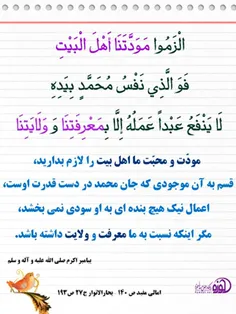 الْزَمُوا مَوَدَّتَنَا أَهْلَ الْبَيْتِ
فَوَ الَّذِي نَفْسُ مُحَمَّدٍ بِيَدِهِ
لَا يَنْفَعُ عَبْداً عَمَلُهُ إِلَّا بِمَعْرِفَتِنَا وَ وَلَايَتِنَا
مودّت و محبّت ما اهل بیت را لازم بدارید،
قسم به آن موجودی که جان محمد در دست قدرت اوست،
اعمال نیک هیچ بنده ای به او سودی نمی بخشد،
مگر اینکه نسبت به ما معرفت و ولایت داشته باشد.
پیامبر اکرم صلی الله علیه و آله و سلم
امالی مفید ص ۱۴۰ بحارالانوار ج۲۷ ص۱۹۳